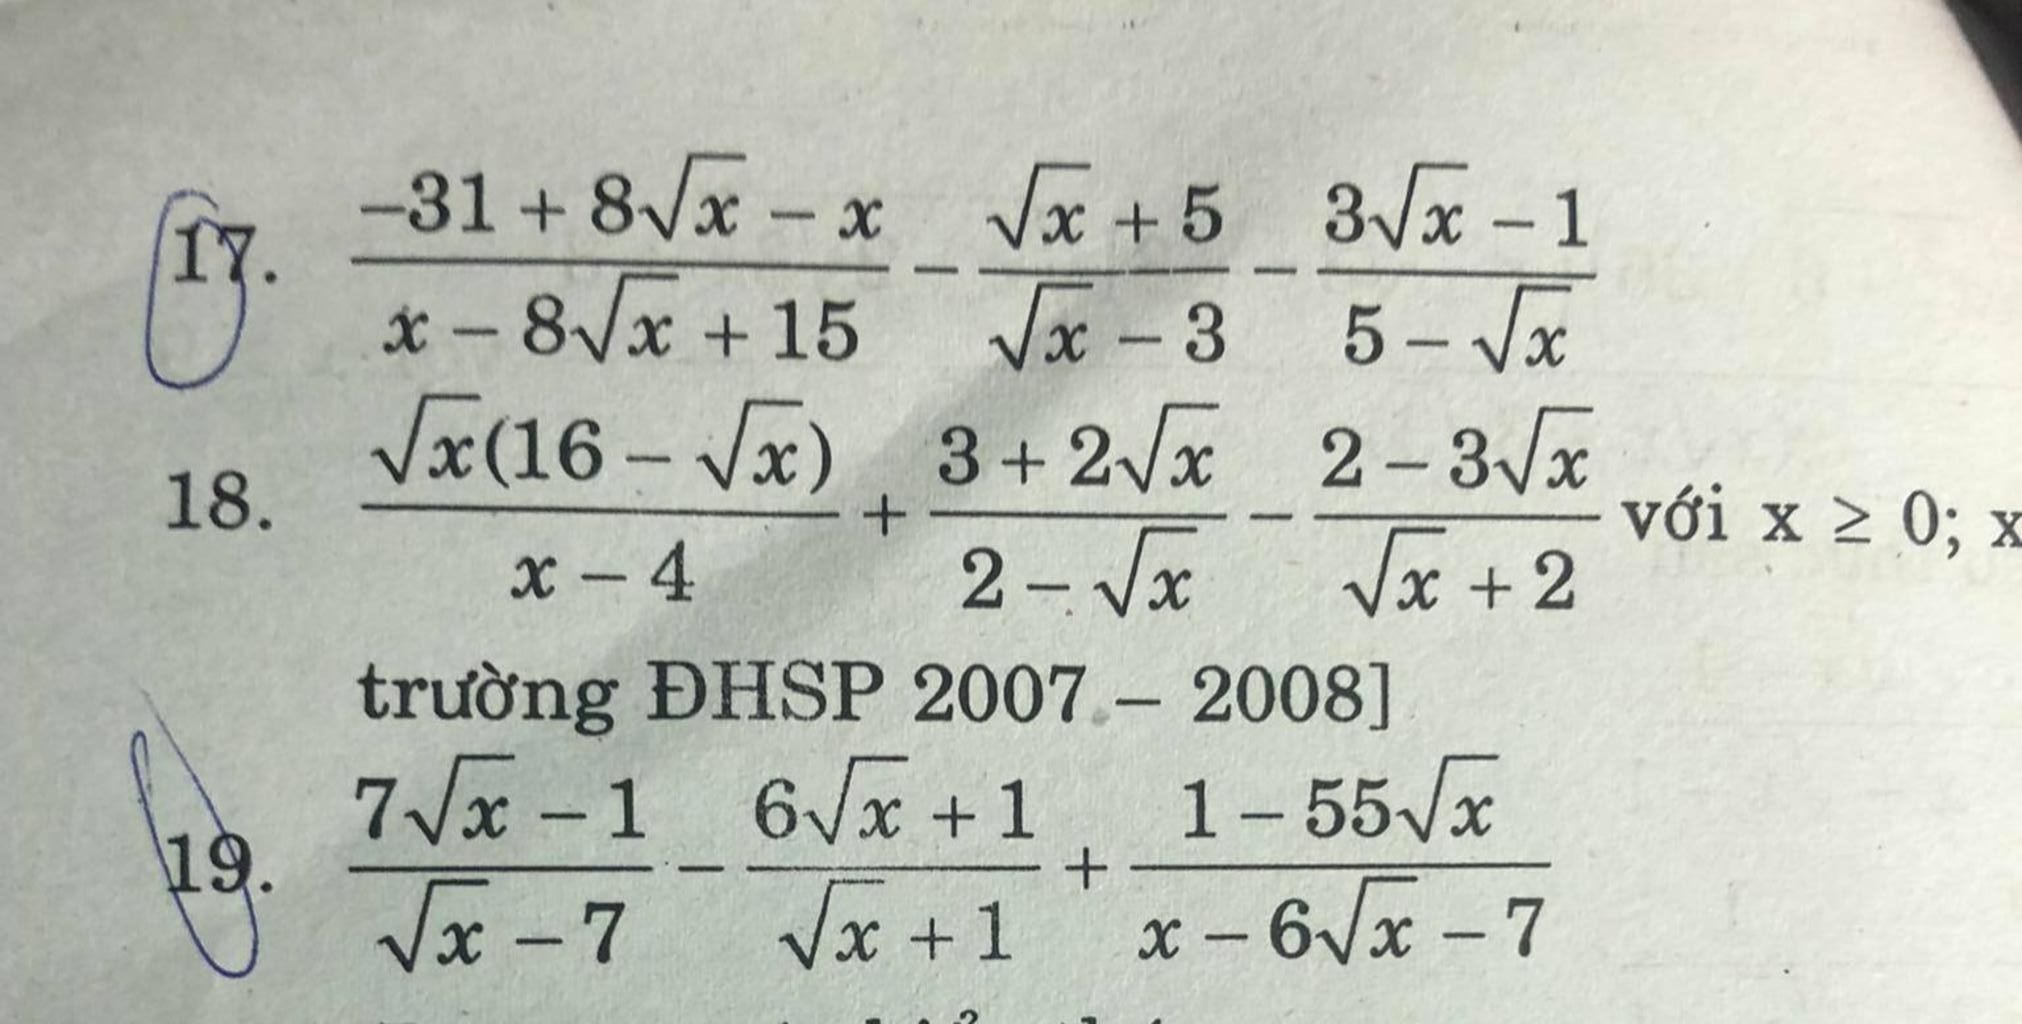 17. \frac{-31 + 8\sqrt{x} - x}{x - 8\sqrt{x} + 15} - \frac{\sqrt{x} + 5}{\sqrt{x} - 3} - \frac{3\sqrt{x} - 1}{5 - \sqrt{x}}
18. \frac{\sqrt{x}(16 - \sqrt{x})}{x - 4} + \frac{3 + 2\sqrt{x}}{2 - \sqrt{x}} - \frac{2 - 3\sqrt{x}}{\sqrt{x} + 2} với x ≥ 0; x
trường ĐHSP 2007 – 2008]
19. \frac{7\sqrt{x} - 1}{\sqrt{x} - 7} - \frac{6\sqrt{x} + 1}{\sqrt{x} + 1} + \frac{1 - 55\sqrt{x}}{x - 6\sqrt{x} - 7}